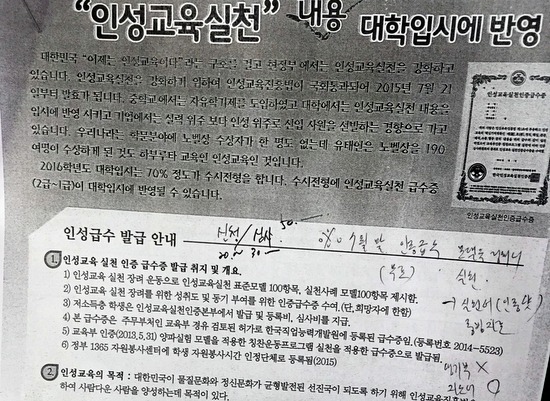 "인성교육실천" 내용 대학입시에 반영
대한민국 "이제는 인성교육이다"라는 구호를 걸고 현정부에서는 인성교육실천을 강화하고
있습니다. 인성교육실천을 강화하기 위하여 인성교육진흥법이 국회통과되어 2015년 7월 21
일부터 발효가 됩니다. 중학교에서는 자유학기제를 도입하였고 대학에서는 인성교육실천 내용을
입시에 반영 시키고 기업에서는 실력 위주 보다 인성 위주로 신입 사원을 선발하는 경향으로 가고
있습니다. 우리나라는 학문분야에 노벨상 수상자가 한 명도 없는데 유태인은 노벨상을 190
여명이 수상하게 된 것도 하루부타 교육인 인성교육인 것입니다.
2016학년도 대학입시는 70% 정도가 수시전형을 합니다. 수시전형에 인성교육실천 급수증
(2급~1급)이 대학입시에 반영될 수 있습니다.
인성교육실천인증급수증
인성급수 발급 안내
신청/심사
50.
20.
30.
인증급수
(무료)
실천
1. 인성교육 실천 인증 급수증 발급 취지 및 개요.
1) 인성교육 실천 장려 운동으로 인성교육실천 표준모델 100항목, 실천사례 모델100항목 제시함.
2) 인성교육 실천 장려를 위한 성취도 및 동기 부여를 위한 인증급수증 수여.(단,희망자에 한함)
3) 저소득층 학생은 인성교육실천인증본부에서 발급 및 등록비, 심사비를 지급.
4) 본 급수증은 주무부처인 교육부 경유 검토된 허가로 한국직업능력개발원에 등록된 급수증임.(등록번호 2014-5523)
5) 교육부 인증(2013.5.31) 양파실험 모델을 적용한 창찬운동프로그램 실천을 적용한 급수증으로 발급됨.
6) 정부 1365 자원봉사센터에 학생 자원봉사시간 인정단체로 등록됨(2015)
X
O
2. 인성교육의 목적 : 대한민국이 물질문화와 정신문화가 균형발전된 선진국이 되도록 하기 위해 인성교육진흥법
하여 사람다운 사람을 양성하는데 목적이 있다.